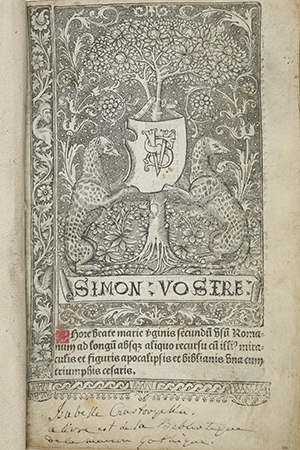 SV
SIMON : VOSTRE :
Hore beate marie v̄ginis secundū vsū Roma
num ad longū absq3 aliquo recursu cū illi9 mira
culis et figuris apocalipsis et biblianis vna cum
triumphis cesaris.
Isabelle
ce livre est de la Bibliothèque
de la maison gothique.